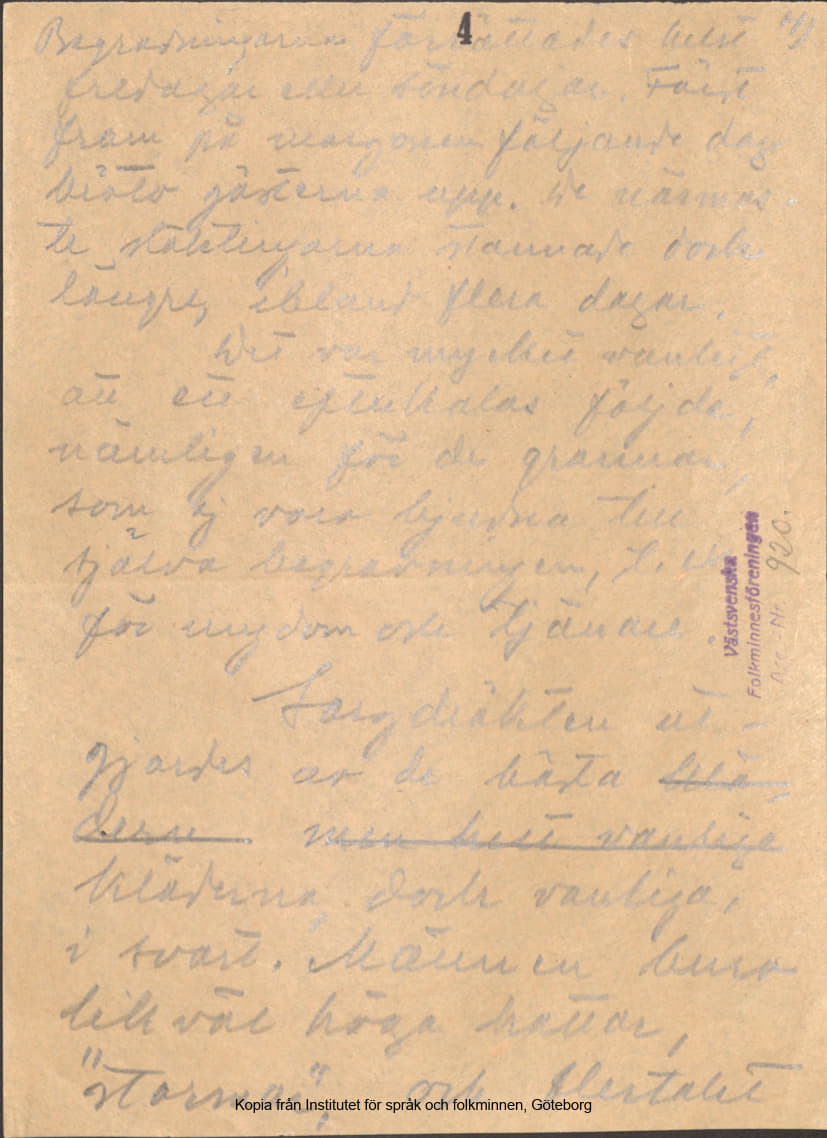 4
4)
Begravningarna förrättades helst
fredagar eller söndagar. Först
fram på morgonen följande dag
bröto gästerna upp. De närmas-
te släktingarna stannade dock
längre, ibland flera dagar.
Det var mycket vanligt,
att ett efterkalas följde,
nämligen för de grannar,
som ej voro bjudna till
själva begravningen,
för ungdom och tjänare.
Sorgdräkten ut-
gjordes av de bästa klä-
derna men helt vanliga
kläderna, dock vanliga,
i svart. Männen buro
likväl höga hattar,
"stormar", och flertalet
Västsvenska
Folkminnesföreningen
Acc.-Nr. 920.
Kopia från Institutet för språk och folkminnen, Göteborg